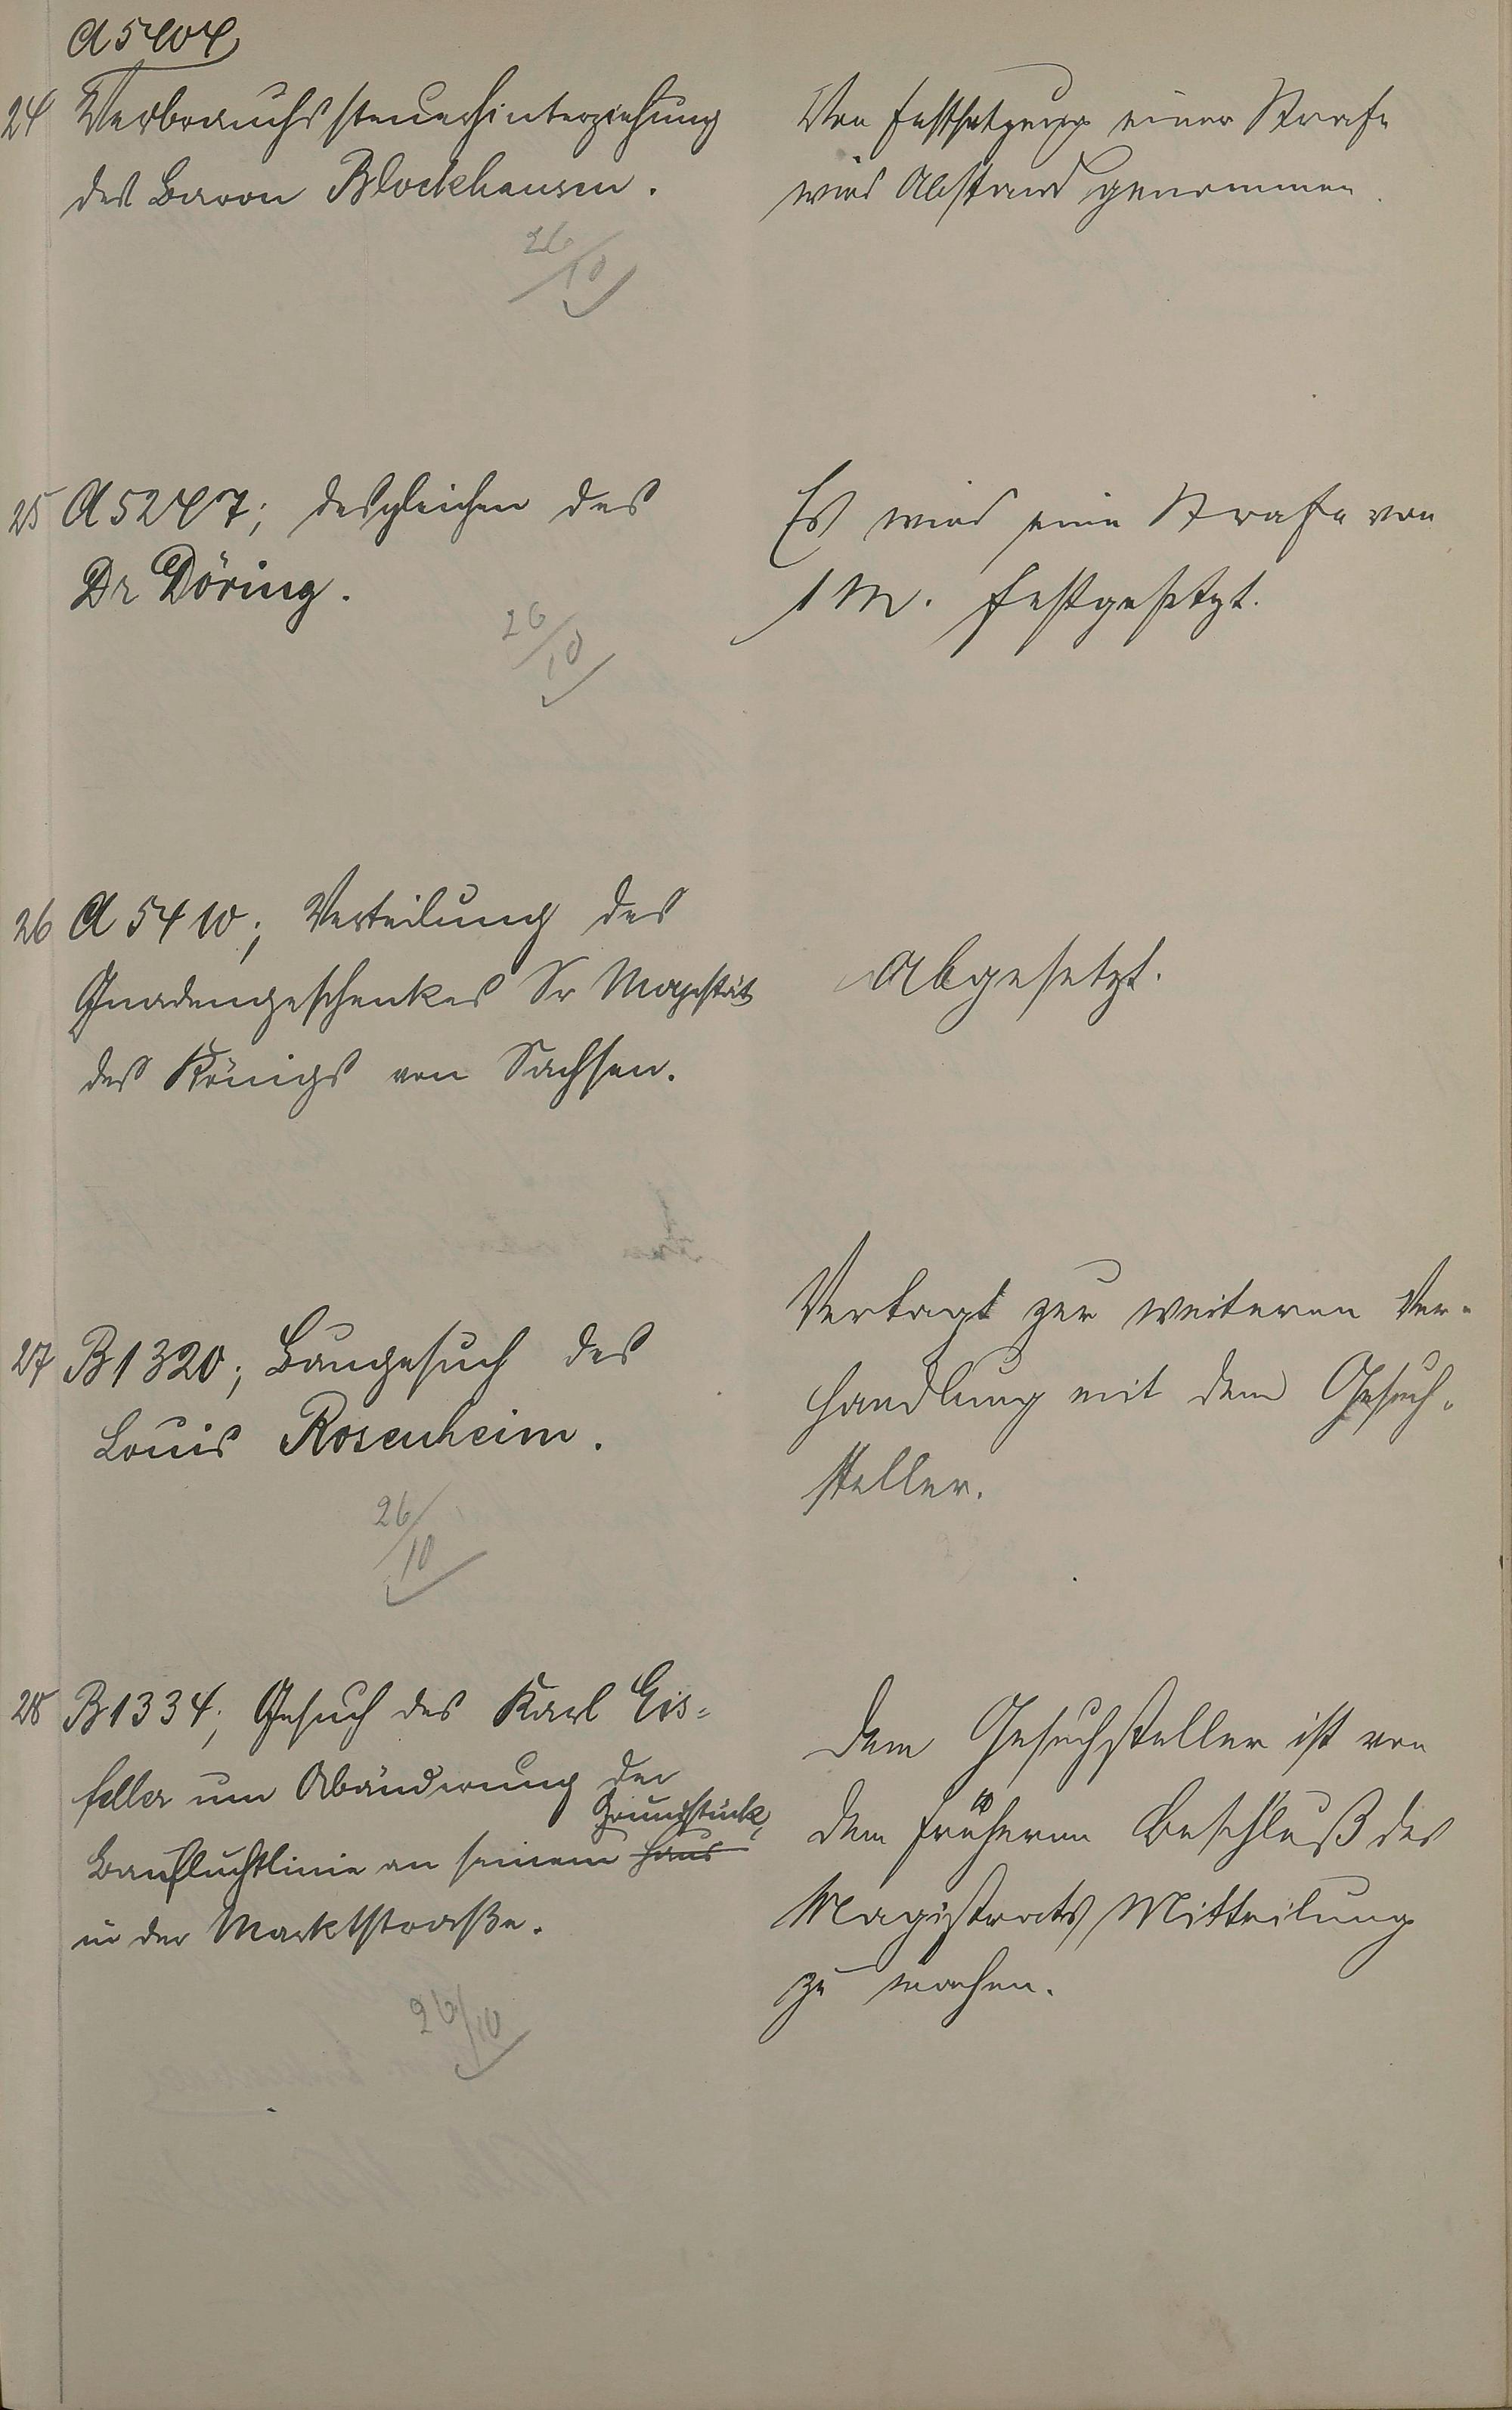 A 5404
24 Verbrauchssteuerhinterziehung
des Baron Blockhausen.
26/10
Von Festsetzung einer Strafe
wird Abstand genommen.
25 A 5247; desgleichen des
Dr Döring.
26/10
Es wird eine Strafe von
1 M. festgesetzt.
26 A 5410; Verteilung des
Gnadengeschenkes Sr Majestät
des Königs von Sachsen.
Abgesetzt.
27 B 1320; Baugesuch des
Louis Rosenheim.
26/10
Vertagt zur weiteren Ver-
handlung mit dem Gesuch-
steller.
28 B 1334; Gesuch des Karl Eis-
feller um Abänderung der
Grundstück
Baufluchtlinie an seinem Haus
in der Marktstraße.
26/10
Dem Gesuchsteller ist von
dem früheren Beschluß des
Magistrats Mitteilung
zu machen.